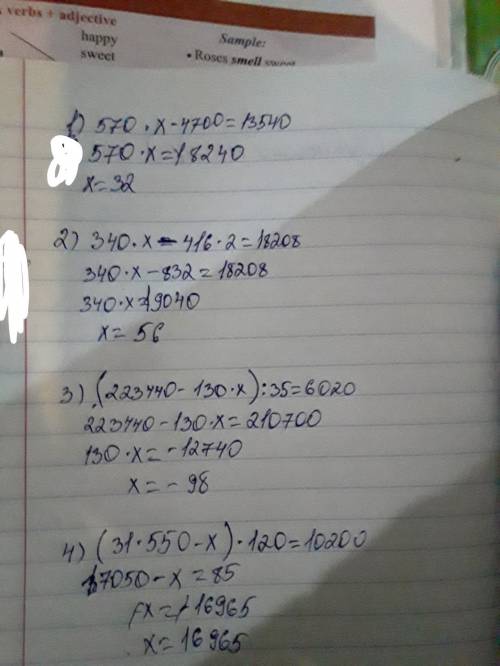 verbs + adjective
happy
sweet
Sample:
• Roses smell sweet
1) 570 · x - 4700 = 13540
570 · x = 18240
x = 32
2) 340 · x - 416 · 2 = 18208
340 · x - 832 = 18208
340 · x = 19040
x = 56
3) (223440 - 130 · x) : 35 = 6020
223440 - 130 · x = 210700
130 · x = -12740
x = - 98
4) (31 · 550 - x) · 120 = 10200
17050 - x = 85
-x = -16965
x = 16965